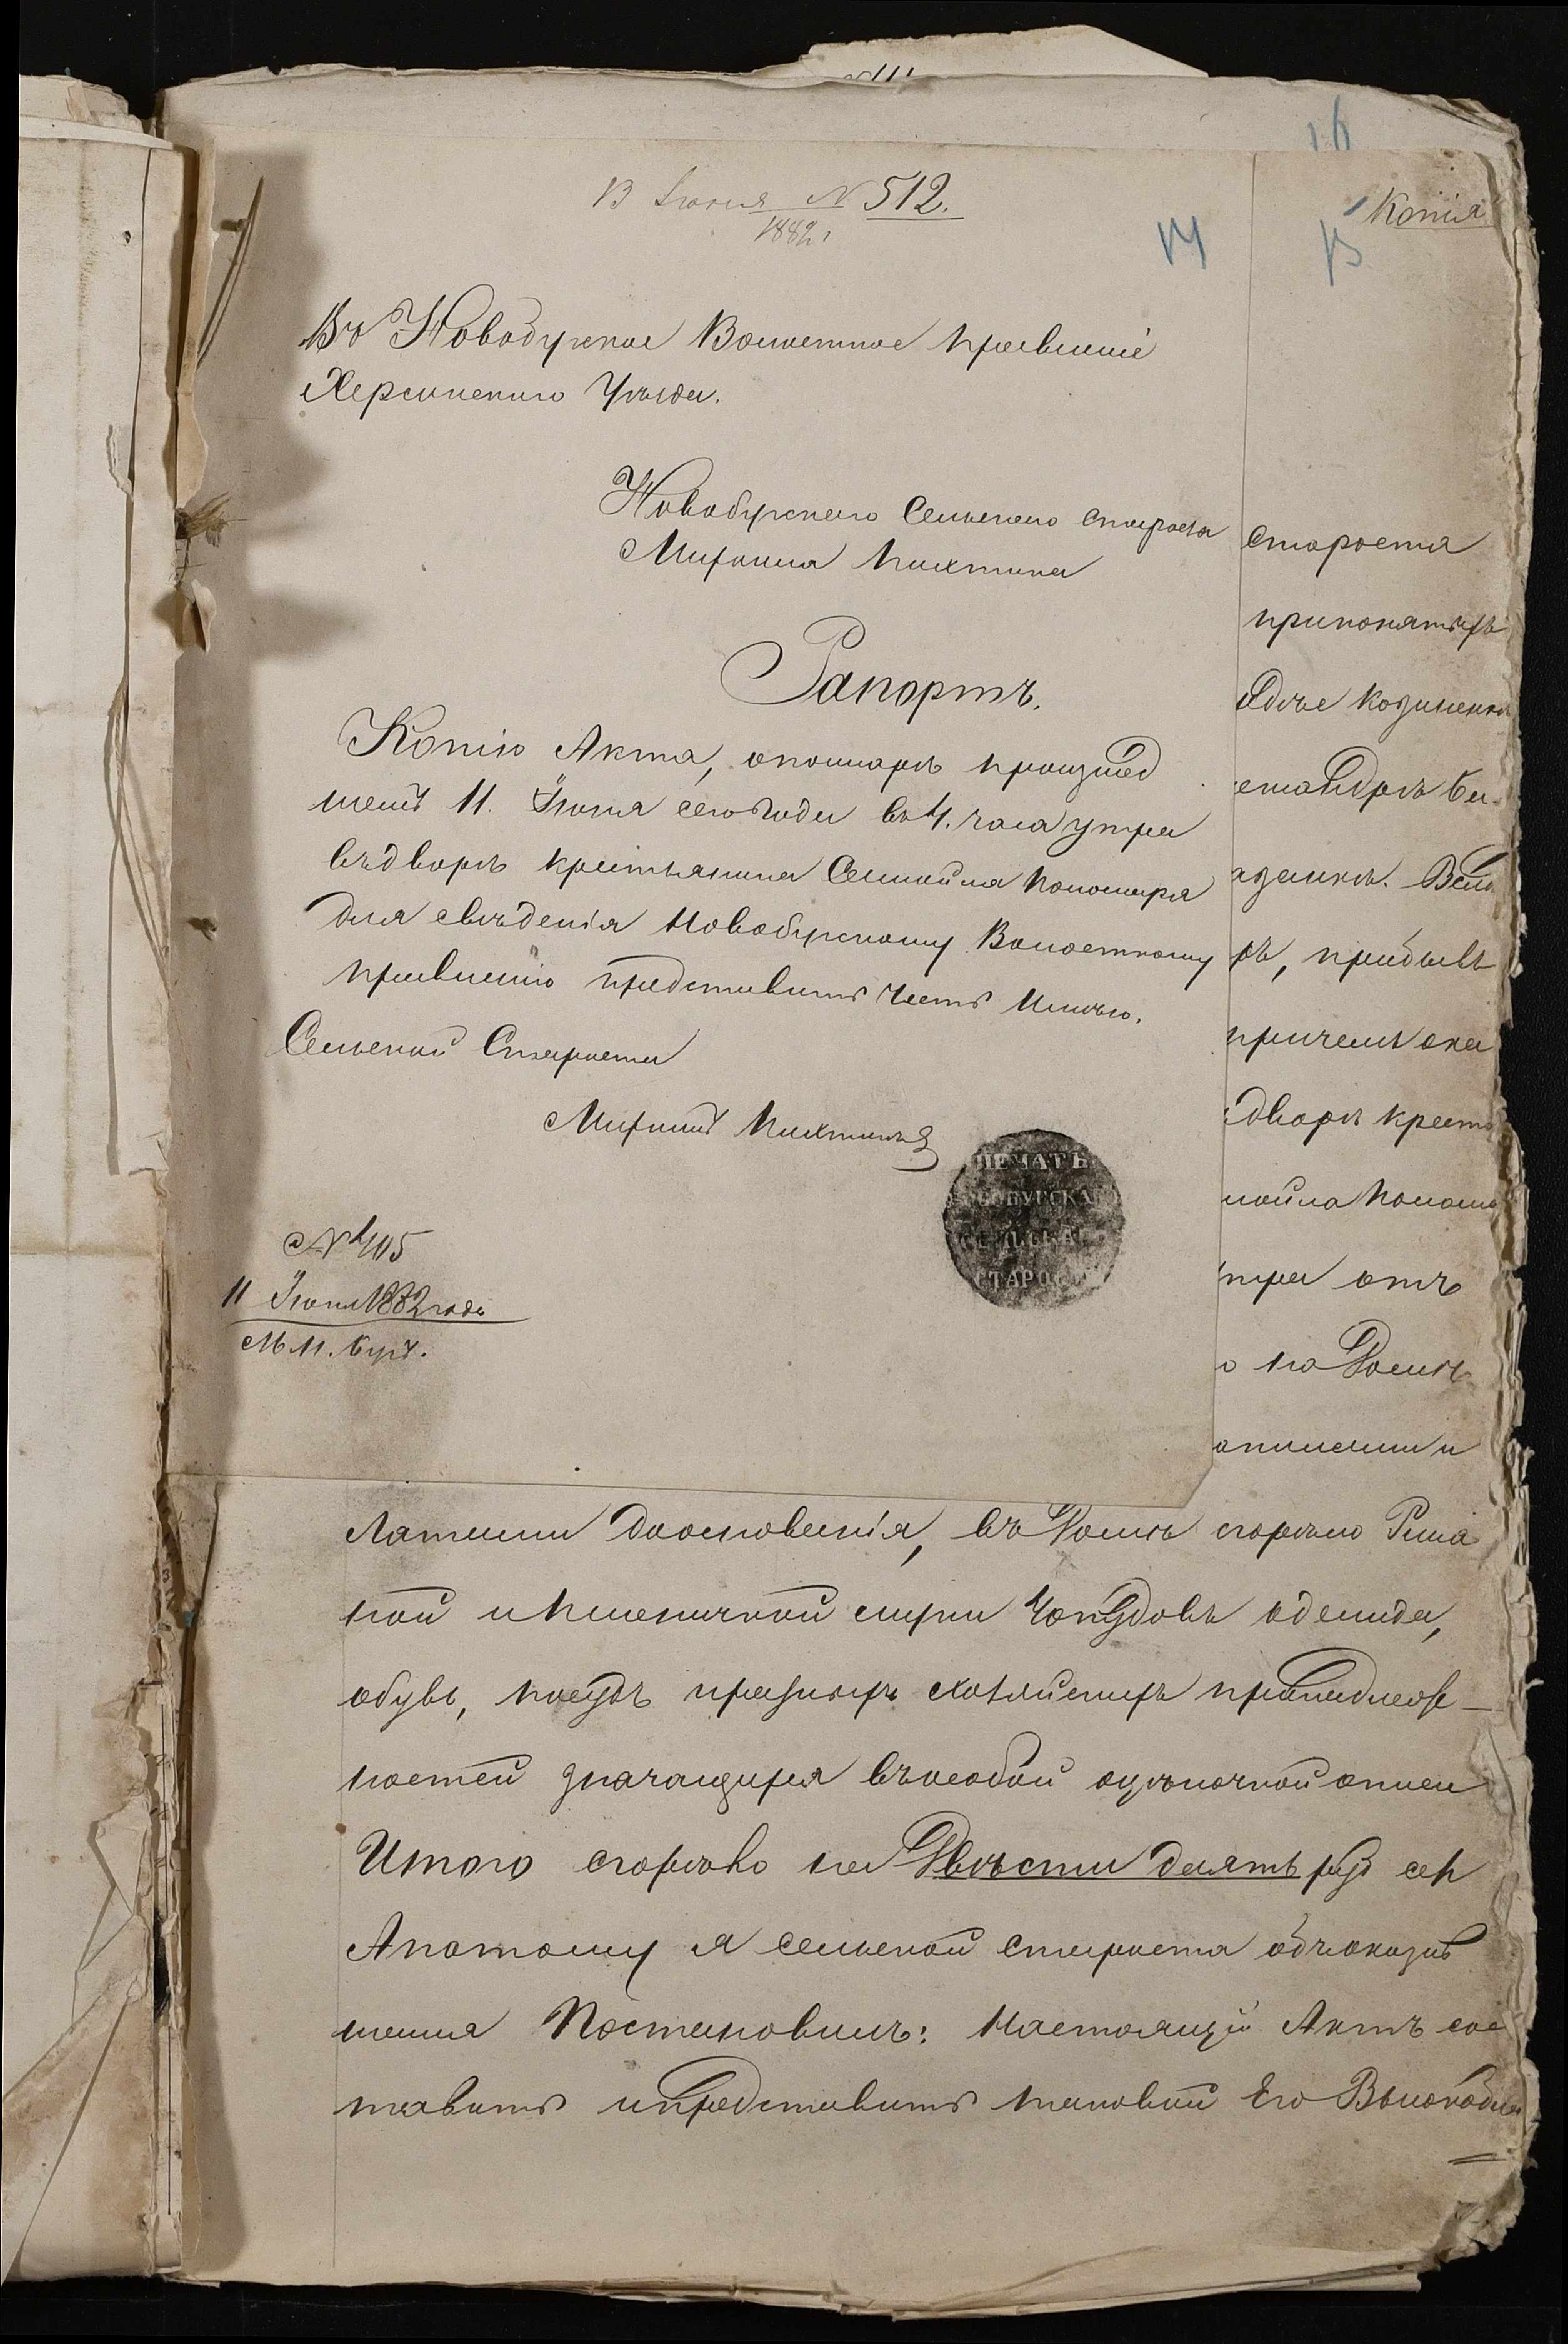 16
13 Іюня N 512.
1882 г
14
15
Копія
Въ Новобугское Волостное правленіе
Херсонскаго Уѣзда.
Новобугскаго Сельскаго старосты
Мирона
Рапортъ.
Копію Акта, опожарѣ произшед
шемъ 11. Іюня сего года въ 4. часа утра
въдворѣ крестьянина Самойла Пономаря
для свѣденія Новобугскому Волостному
правленію представить честь имѣю.
Сельской Староста
Миронъ
ПЕЧАТЬ
БУГСКА
СТАРОС
N 405
11 Іюня 1882 года
М. Н. Бугъ.
староста
припонятыхъ
прибывъ
причемъ ока
дворѣ крест
мойла Поном
тра отъ
о на домѣ
Латами дооснованія, въ домѣ сгорѣло Ржа
ной и Пшеничной муки пудовъ одежда,
обувь, посуда разныхъ хозяйскихъ принадлеж-
ностей значащихся въособой оцѣночной описи
Итого сгорѣло на Двѣсти десять руб сер
Апотому я сельской староста обчоказав
шемся Постановилъ: Настоящій Актъ сос
тавить ипредставить таковой Его Высокобла